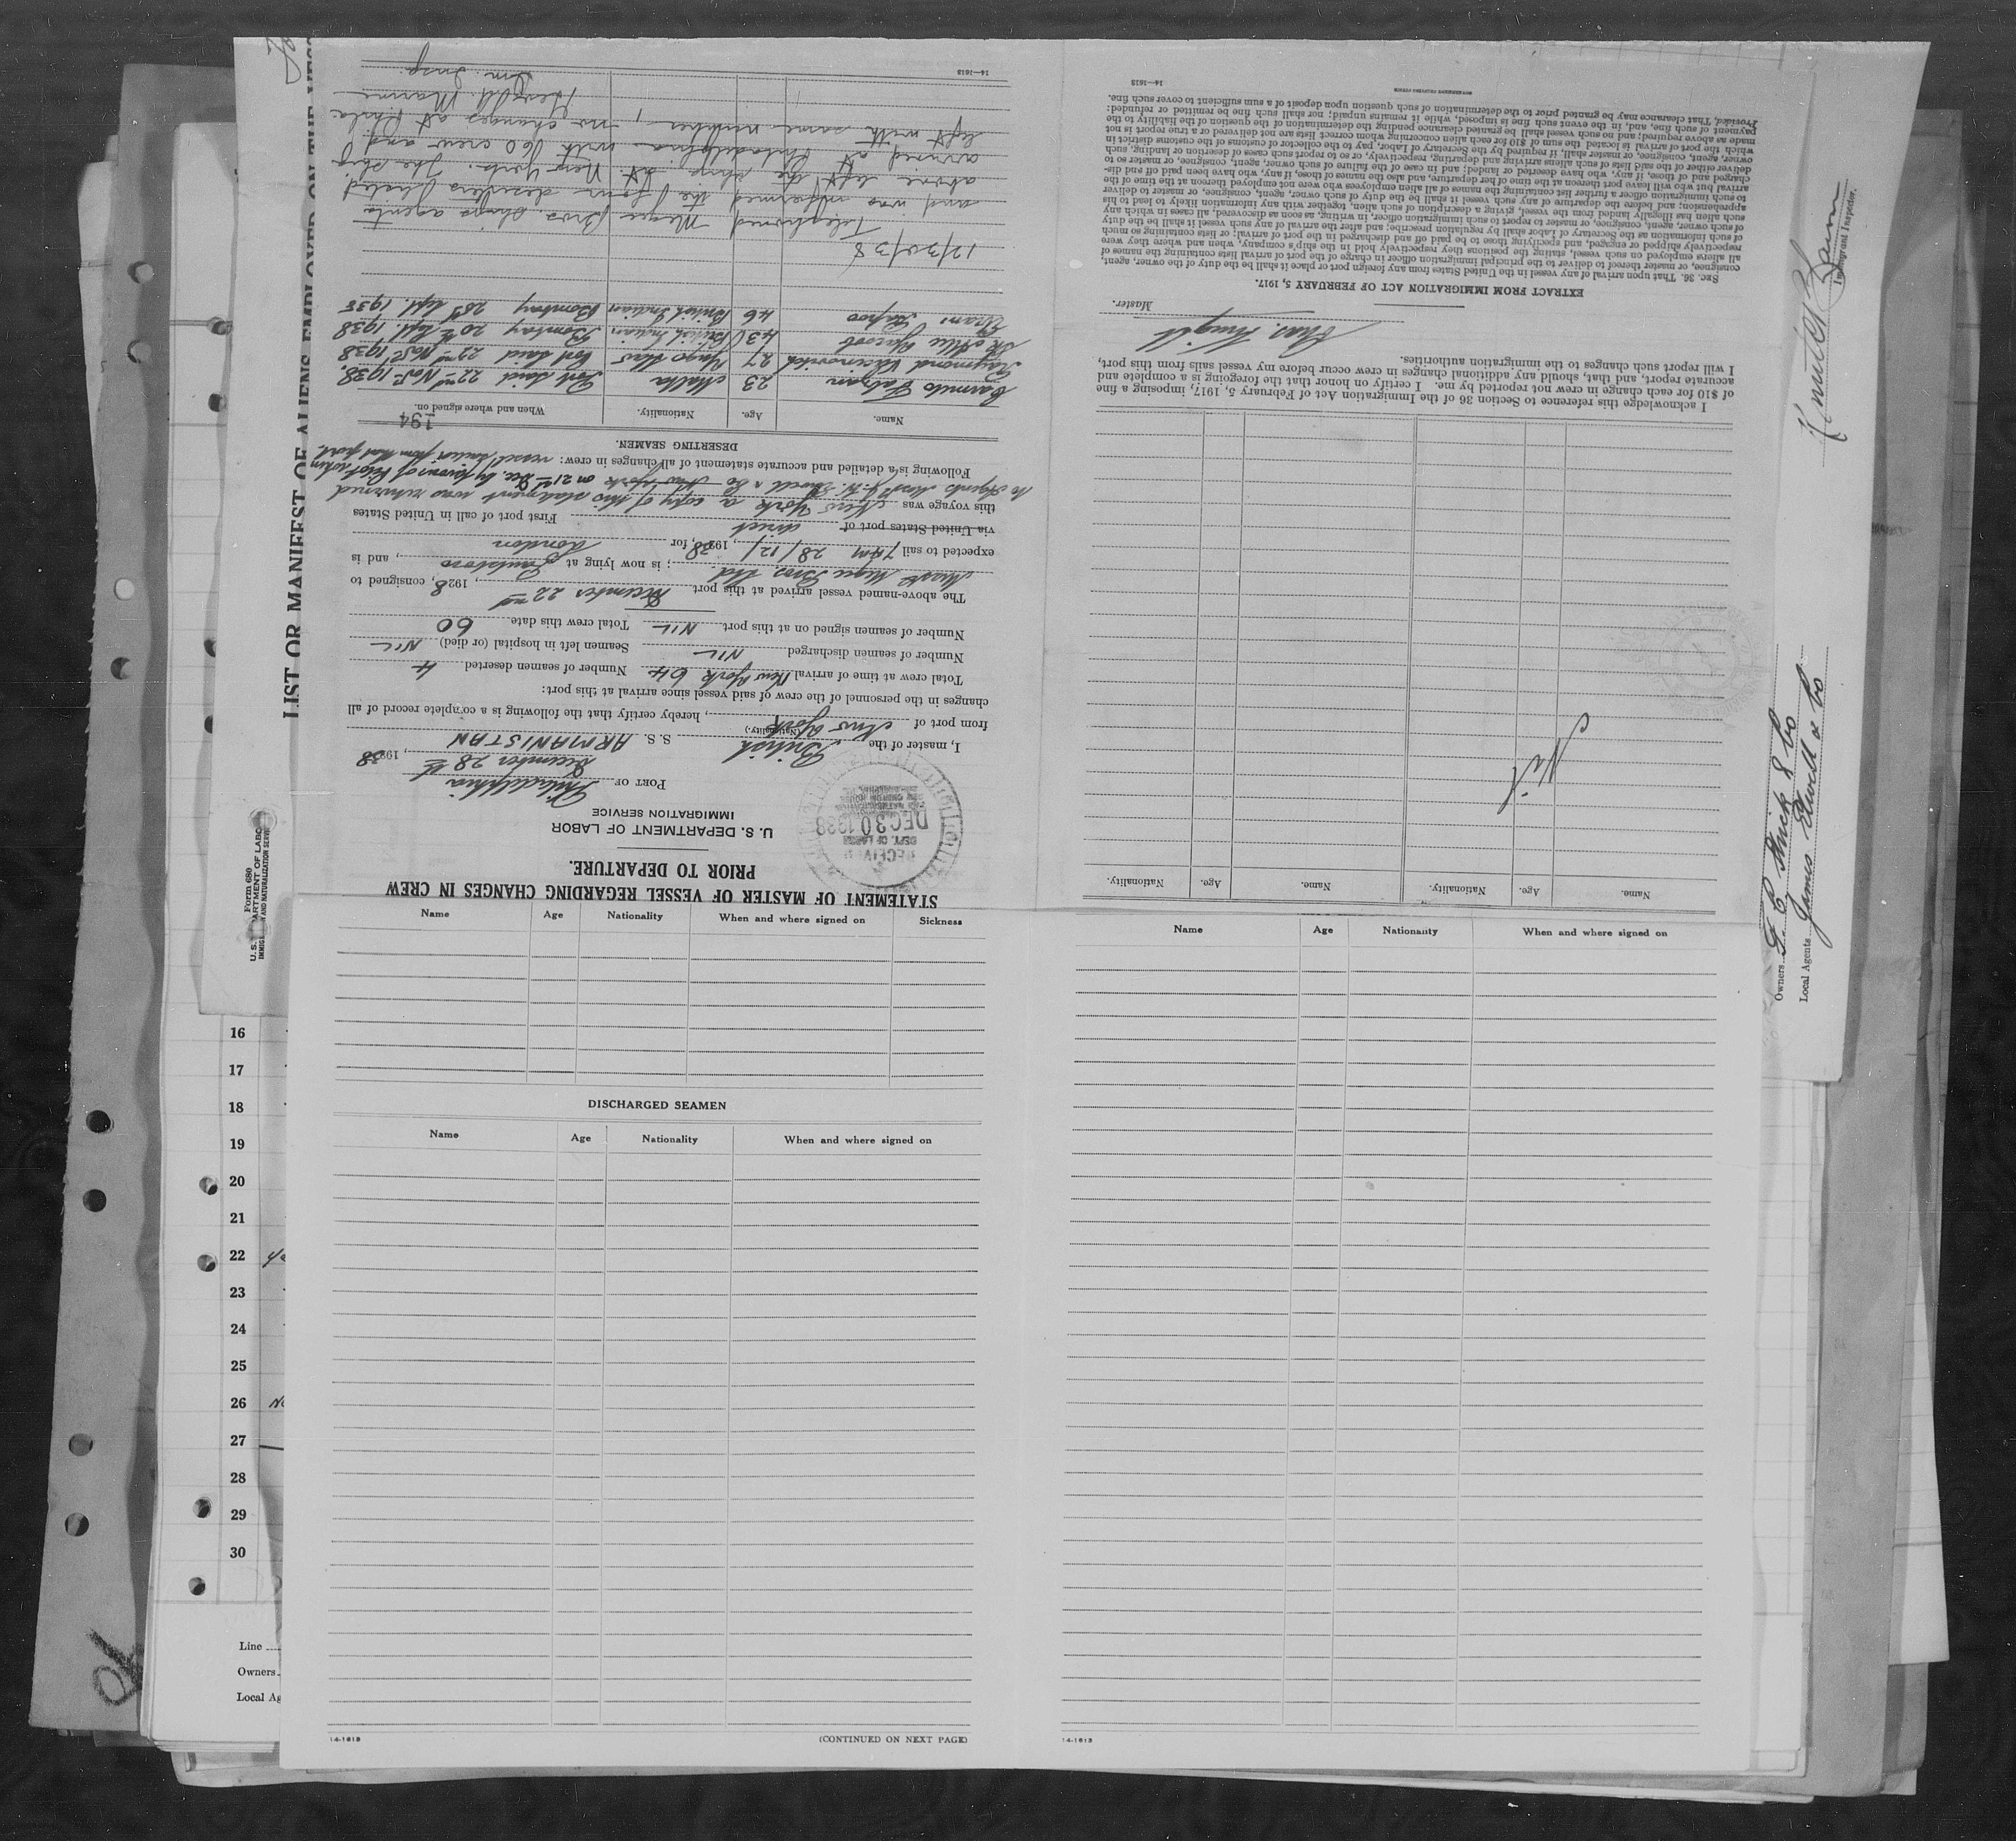 STATEMENT OF MASTER OF VESSEL REGARDING CHANGES IN CREW
PRIOR TO DEPARTURE.
U. S. DEPARTMENT OF LABOR
IMMIGRATION SERVICE
RECEIVED
DEPT. OF LABOR
DEC 30 1938
PORT OF Philadelphia
December 28th, 1938
I, master of the British S. S. ARMANISTAN
(Nationality.)
from port of New York, hereby certify that the following is a complete record of all
changes in the personnel of the crew of said vessel since arrival at this port:
Total crew at time of arrival New York 64 Number of seamen deserted 4
Number of seamen discharged NIL Seamen left in hospital (or died) NIL
Number of seamen signed on at this port NIL Total crew this date 60
The above-named vessel arrived at this port December 22nd, 1928, consigned to
Messrs Bros. Ltd.; is now lying at, and is
expected to sail 7 AM 28/12/, 1938, for London
via United States port of direct First port of call in United States
this voyage was New York a copy of this statement was returned
to Agents Messrs J. W. Elwell & Co New York on 21st Dec. by favour of Pilot when
Following is a detailed and accurate statement of all changes in crew: vessel sailed from that port.
DESERTING SEAMEN.
194
Name. Age. Nationality. When and where signed on.
Carmelo 23 Malta Port Said 22nd Nov. 1938.
Raymond 27 Jugo Slav Port Said 22nd Nov. 1938
43 British Indian Bombay 20th Sept. 1938
46 British Indian Bombay 28th Sept. 1938
12/30/38
Telephoned Bros. ships agents
and was informed the four deserters listed
above left the ship at New York. The ship
arrived at Philadelphia with 60 crew and
left with same number, no changes at Phila.
Marine
Im. Insp.
14—1613
Name. Age. Nationality. Name. Age. Nationality.
Nil
I acknowledge this reference to Section 36 of the Immigration Act of February 5, 1917, imposing a fine
of $10 for each change in crew not reported by me. I certify on honor that the foregoing is a complete and
accurate report, and that, should any additional changes in crew occur before my vessel sails from this port,
I will report such changes to the immigration authorities.
Chas. Knight
Master.
EXTRACT FROM IMMIGRATION ACT OF FEBRUARY 5, 1917.
Sec. 36. That upon arrival of any vessel in the United States from any foreign port or place it shall be the duty of the owner, agent,
consignee, or master thereof to deliver to the principal immigration officer in charge of the port of arrival lists containing the names of
all aliens employed on such vessel, stating the positions they respectively hold in the ship's company, when and where they were
respectively shipped or engaged, and specifying those to be paid off and discharged in the port of arrival; or lists containing so much
of such information as the Secretary of Labor shall by regulation prescribe; and after the arrival of any such vessel it shall be the duty
of such owner, agent, consignee, or master to report to such immigration officer, in writing, as soon as discovered, all cases in which any
such alien has illegally landed from the vessel, giving a description of such alien, together with any information likely to lead to his
apprehension; and before the departure of any such vessel it shall be the duty of such owner, agent, consignee, or master to deliver
to such immigration officer a further list containing the names of all alien employees who were not employed thereon at the time of the
arrival but who will leave port thereon at the time of her departure, and also the names of those, if any, who have been paid off and dis-
charged and of those, if any, who have deserted or landed; and in case of the failure of such owner, agent, consignee, or master to
deliver either of the said lists of such aliens arriving and departing, respectively, or so to report such cases of desertion or landing, such
owner, agent, consignee, or master shall, if required by the Secretary of Labor, pay to the collector of customs of the customs district in
which the port of arrival is located the sum of $10 for each alien concerning whom correct lists are not delivered or a true report is not
made as above required; and no such vessel shall be granted clearance pending the determination of the question of the liability to the
payment of such fine, and, in the event such fine is imposed, while it remains unpaid; nor shall such fine be remitted or refunded:
Provided, That clearance may be granted prior to the determination of such question upon deposit of a sum sufficient to cover such fine.
14—1613
LIST OR MANIFEST OF ALIENS EMPLOYED ON THE
Form 680
U. S. DEPARTMENT OF LABOR
IMMIGRATION AND NATURALIZATION SERVICE
Owners F. C. Strick & Co
Local Agents James Elwell & Co
Immigrant Inspector.
Name Age Nationality When and where signed on Sickness
DISCHARGED SEAMEN
Name Age Nationality When and where signed on
14-1613
(CONTINUED ON NEXT PAGE)
Name Age Nationality When and where signed on
14-1613
16
17
18
19
20
21
22
23
24
25
26
27
28
29
30
Line
Owners
Local Ag